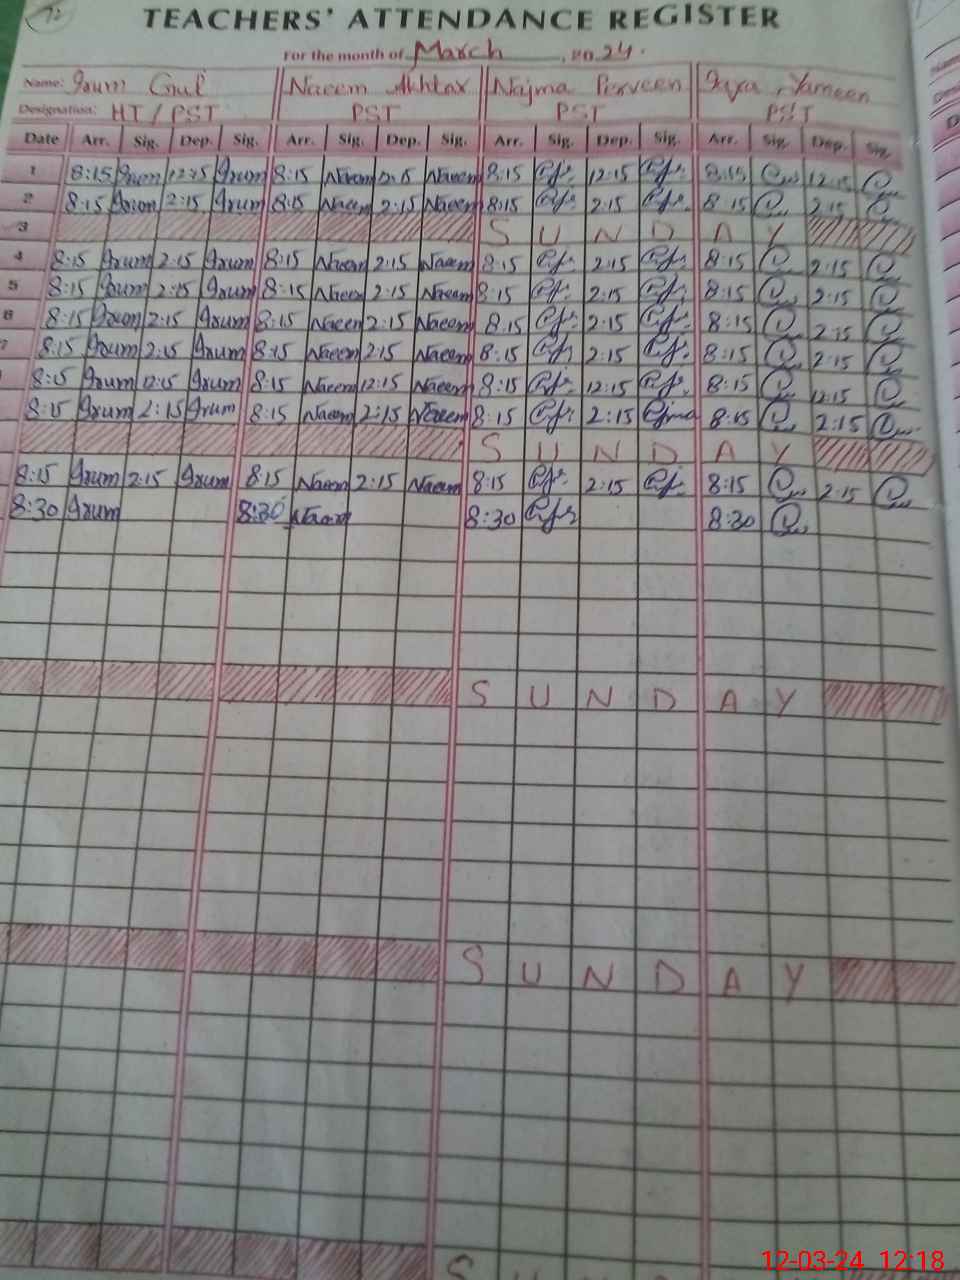 72
TEACHERS' ATTENDANCE REGISTER
For the month of March, 2024.
Name: Irum Gul Naeem Akhtar Najma Perveen Yameen
Designation: HT / PST PST PST PST
Date Arr. Sig. Dep. Sig. Arr. Sig. Dep. Sig. Arr. Sig. Dep. Sig. Arr. Sig. Dep. Sig.
1 8:15 Irum 12:15 Irum 8:15 Naeem Naeem 8:15 12:15 8:15 12:15
2 8:15 Irum 2:15 Irum 8:15 Naeem 2:15 Naeem 8:15 2:15 8:15 2:15
3 S U N D A Y
4 8:15 Irum 2:15 Irum 8:15 Naeem 2:15 Naeem 8:15 2:15 8:15 2:15
5 8:15 Irum 2:15 Irum 8:15 Naeem 2:15 Naeem 8:15 2:15 8:15 2:15
6 8:15 Irum 2:15 Irum 8:15 Naeem 2:15 Naeem 8:15 2:15 8:15 2:15
7 8:15 Irum 2:15 Irum 8:15 Naeem 2:15 Naeem 8:15 2:15 8:15 2:15
8:15 Irum 12:15 Irum 8:15 Naeem 12:15 Naeem 8:15 12:15 8:15 12:15
8:15 Irum 2:15 Irum 8:15 Naeem 2:15 Naeem 8:15 2:15 8:15 2:15
S U N D A Y
8:15 Irum 2:15 Irum 8:15 Naeem 2:15 Naeem 8:15 2:15 8:15 2:15
8:30 Irum 8:30 Naeem 8:30 8:30
S U N D A Y
S U N D A Y
S
12-03-24 12:18